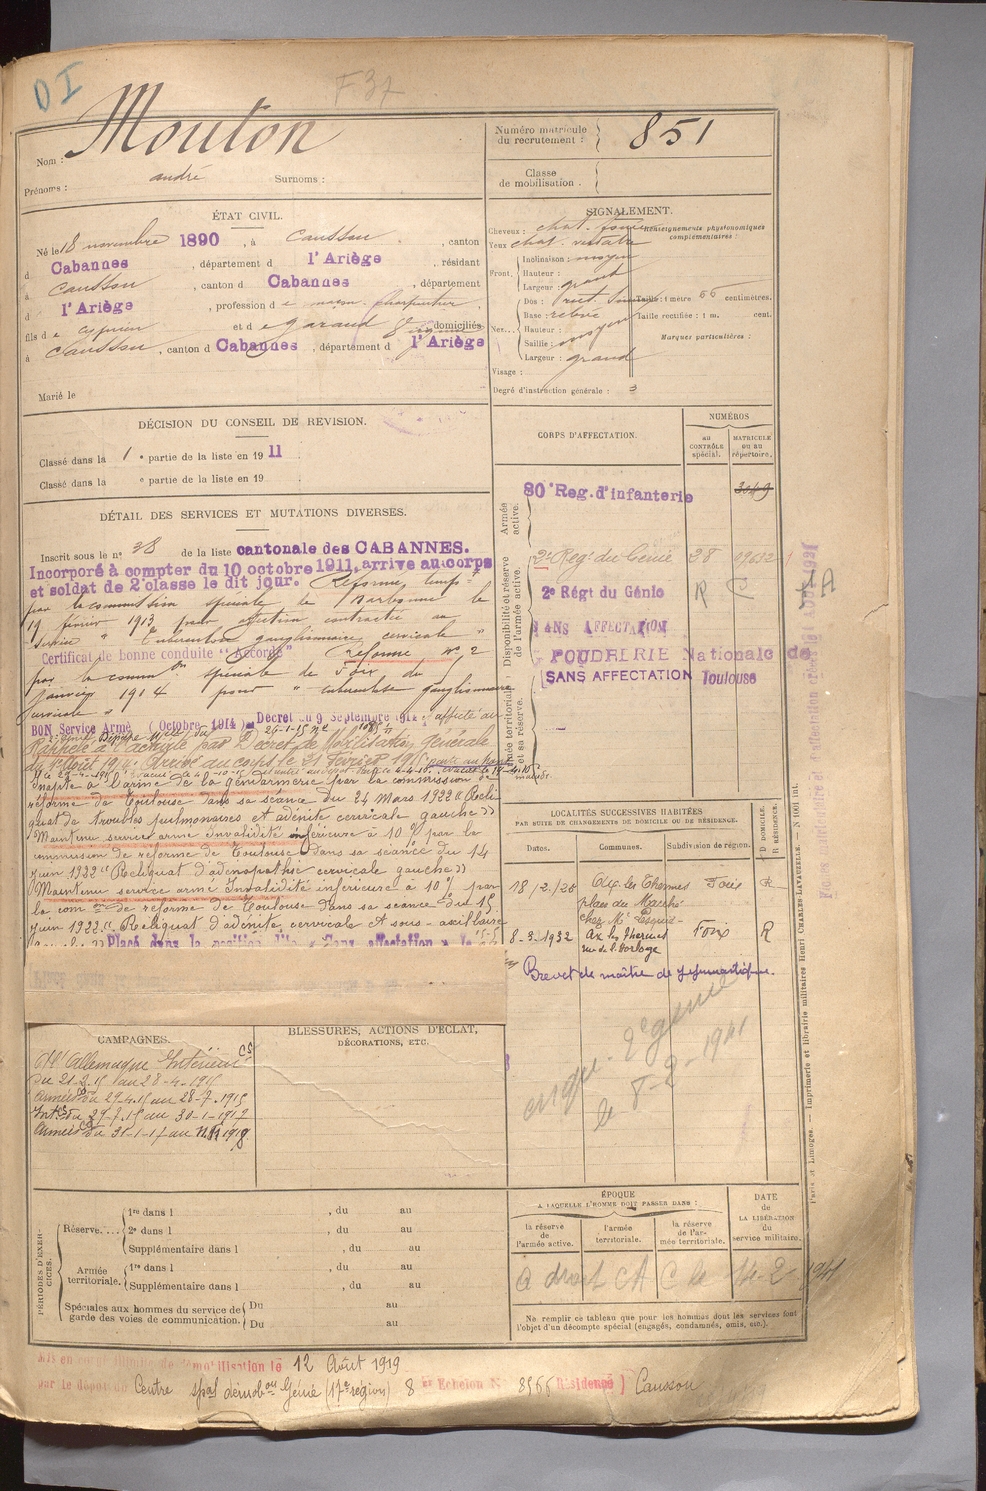 D I
F 37
Nom : Mouton
Prénoms : andré Surnoms :
Numéro matricule du recrutement : 851
Classe de mobilisation .
ÉTAT CIVIL.
Né le 18 novembre 1890 , à Caussou , canton
d Cabannes , département d l'Ariège , résidant
à Caussou , canton d Cabannes , département
d l'Ariège , profession de maçon charpentier ,
fils de Cyprien et de Garaud domiciliés
à Caussou , canton d Cabannes , département d l'Ariège
Marié le
SIGNALEMENT.
Cheveux : chat. foncé
Yeux chat. verdâtre
Renseignements physionomiques complémentaires :
Front. Inclinaison : moyen
Hauteur :
Largeur : grand
Nez... Dos : rect.
Base : relevé
Hauteur :
Saillie : moyen
Largeur : grand
Visage :
Taille : 1 mètre 66 centimètres.
Taille rectifiée : 1 m. cent.
Marques particulières :
Degré d'instruction générale : 3
DÉCISION DU CONSEIL DE REVISION.
Classé dans la 1 e partie de la liste en 1911
Classé dans la e partie de la liste en 19
CORPS D'AFFECTATION.
NUMÉROS
au CONTRÔLE spécial.
MATRICULE ou au répertoire.
Armée active.
80e Reg. d'infanterie 3049
Disponibilité et réserve de l'armée active.
2e Reg. du Génie 28
2e Régt du Génie R C
SANS AFFECTATION
POUDRERIE Nationale de Toulouse
SANS AFFECTATION
Armée territoriale et sa réserve.
DÉTAIL DES SERVICES ET MUTATIONS DIVERSES.
Inscrit sous le n° 38 de la liste cantonale des CABANNES.
Incorporé à compter du 10 octobre 1911, arrivé au corps
et soldat de 2e classe le dit jour. Réformé temp.
par la commission spéciale de Narbonne le
19 février 1913 pour affection contractée au
service " Tuberculose ganglionnaire cervicale "
Certificat de bonne conduite "Accordé" Réformé n° 2
par la comm on spéciale de Foix du
Janvier 1914 pour " tuberculose ganglionnaire
cervicale "
BON Service Armé (Octobre 1914) Décret du 9 Septembre 1914 affecté au
Rappelé à l'activité par Décret de Mobilisation Générale
du 1er Août 1914. Arrivé au corps le 21 Février 1915
Inapte à l'arme de la gendarmerie par la commission de
réforme de Toulouse dans sa séance du 24 Mars 1922 " Reli
quat de troubles pulmonaires et adénite cervicale gauche "
Maintenu service armé Invalidité inférieure à 10 % par la
commission de réforme de Toulouse dans sa séance du 14
juin 1922 " Reliquat d'adénopathie cervicale gauche "
Maintenu service armé Invalidité inférieure à 10 % par
la com on de réforme de Toulouse dans sa séance du 15
juin 1922 " Reliquat d'adénite cervicale et sous-axillaire
Placé dans la position dite « Sans affectation » le
LOCALITÉS SUCCESSIVES HABITÉES
PAR SUITE DE CHANGEMENTS DE DOMICILE OU DE RÉSIDENCE.
Dates. Communes. Subdivision de région. D DOMICILE. R RÉSIDENCE.
18/2/20 Ax les Thermes Foix R
place du Marché
8-3-1932 Ax les Thermes Foix R
rue de l'horloge
Brevet de maître de gymnastique.
2e génie
le 8-2-1941
CAMPAGNES.
Ct Allemagne Intérieur CS
Du 21-2-15 au 28-4-1915
Armées Du 29-4-15 au 28-7-1915
Int. CS Du 29-7-15 au 30-1-1917
Armées Du 31-1-17 au 1919
BLESSURES, ACTIONS D'ÉCLAT,
DÉCORATIONS, ETC.
PÉRIODES D'EXERCICES.
Réserve.... 1re dans l , du au
2e dans l , du au
Supplémentaire dans l , du au
Armée territoriale. 1re dans l , du au
Supplémentaire dans l , du au
Spéciales aux hommes du service de garde des voies de communication. Du au
Du au
ÉPOQUE
A LAQUELLE L'HOMME DOIT PASSER DANS :
la réserve de l'armée active.
l'armée territoriale.
la réserve de l'armée territoriale.
DATE DE LA LIBÉRATION du service militaire.
a droit CA C le 14-2-1941
Ne remplir ce tableau que pour les hommes dont les services font
l'objet d'un décompte spécial (engagés, condamnés, omis, etc.).
Mis en congé illimité de démobilisation le 12 Août 1919
par le dépôt du Centre spal démob on Génie (17e région) 8 e Echelon N° 8966 Résidence ) Caussou
Paris et Limoges. — Imprimerie et librairie militaires Henri CHARLES-LAVAUZELLE.